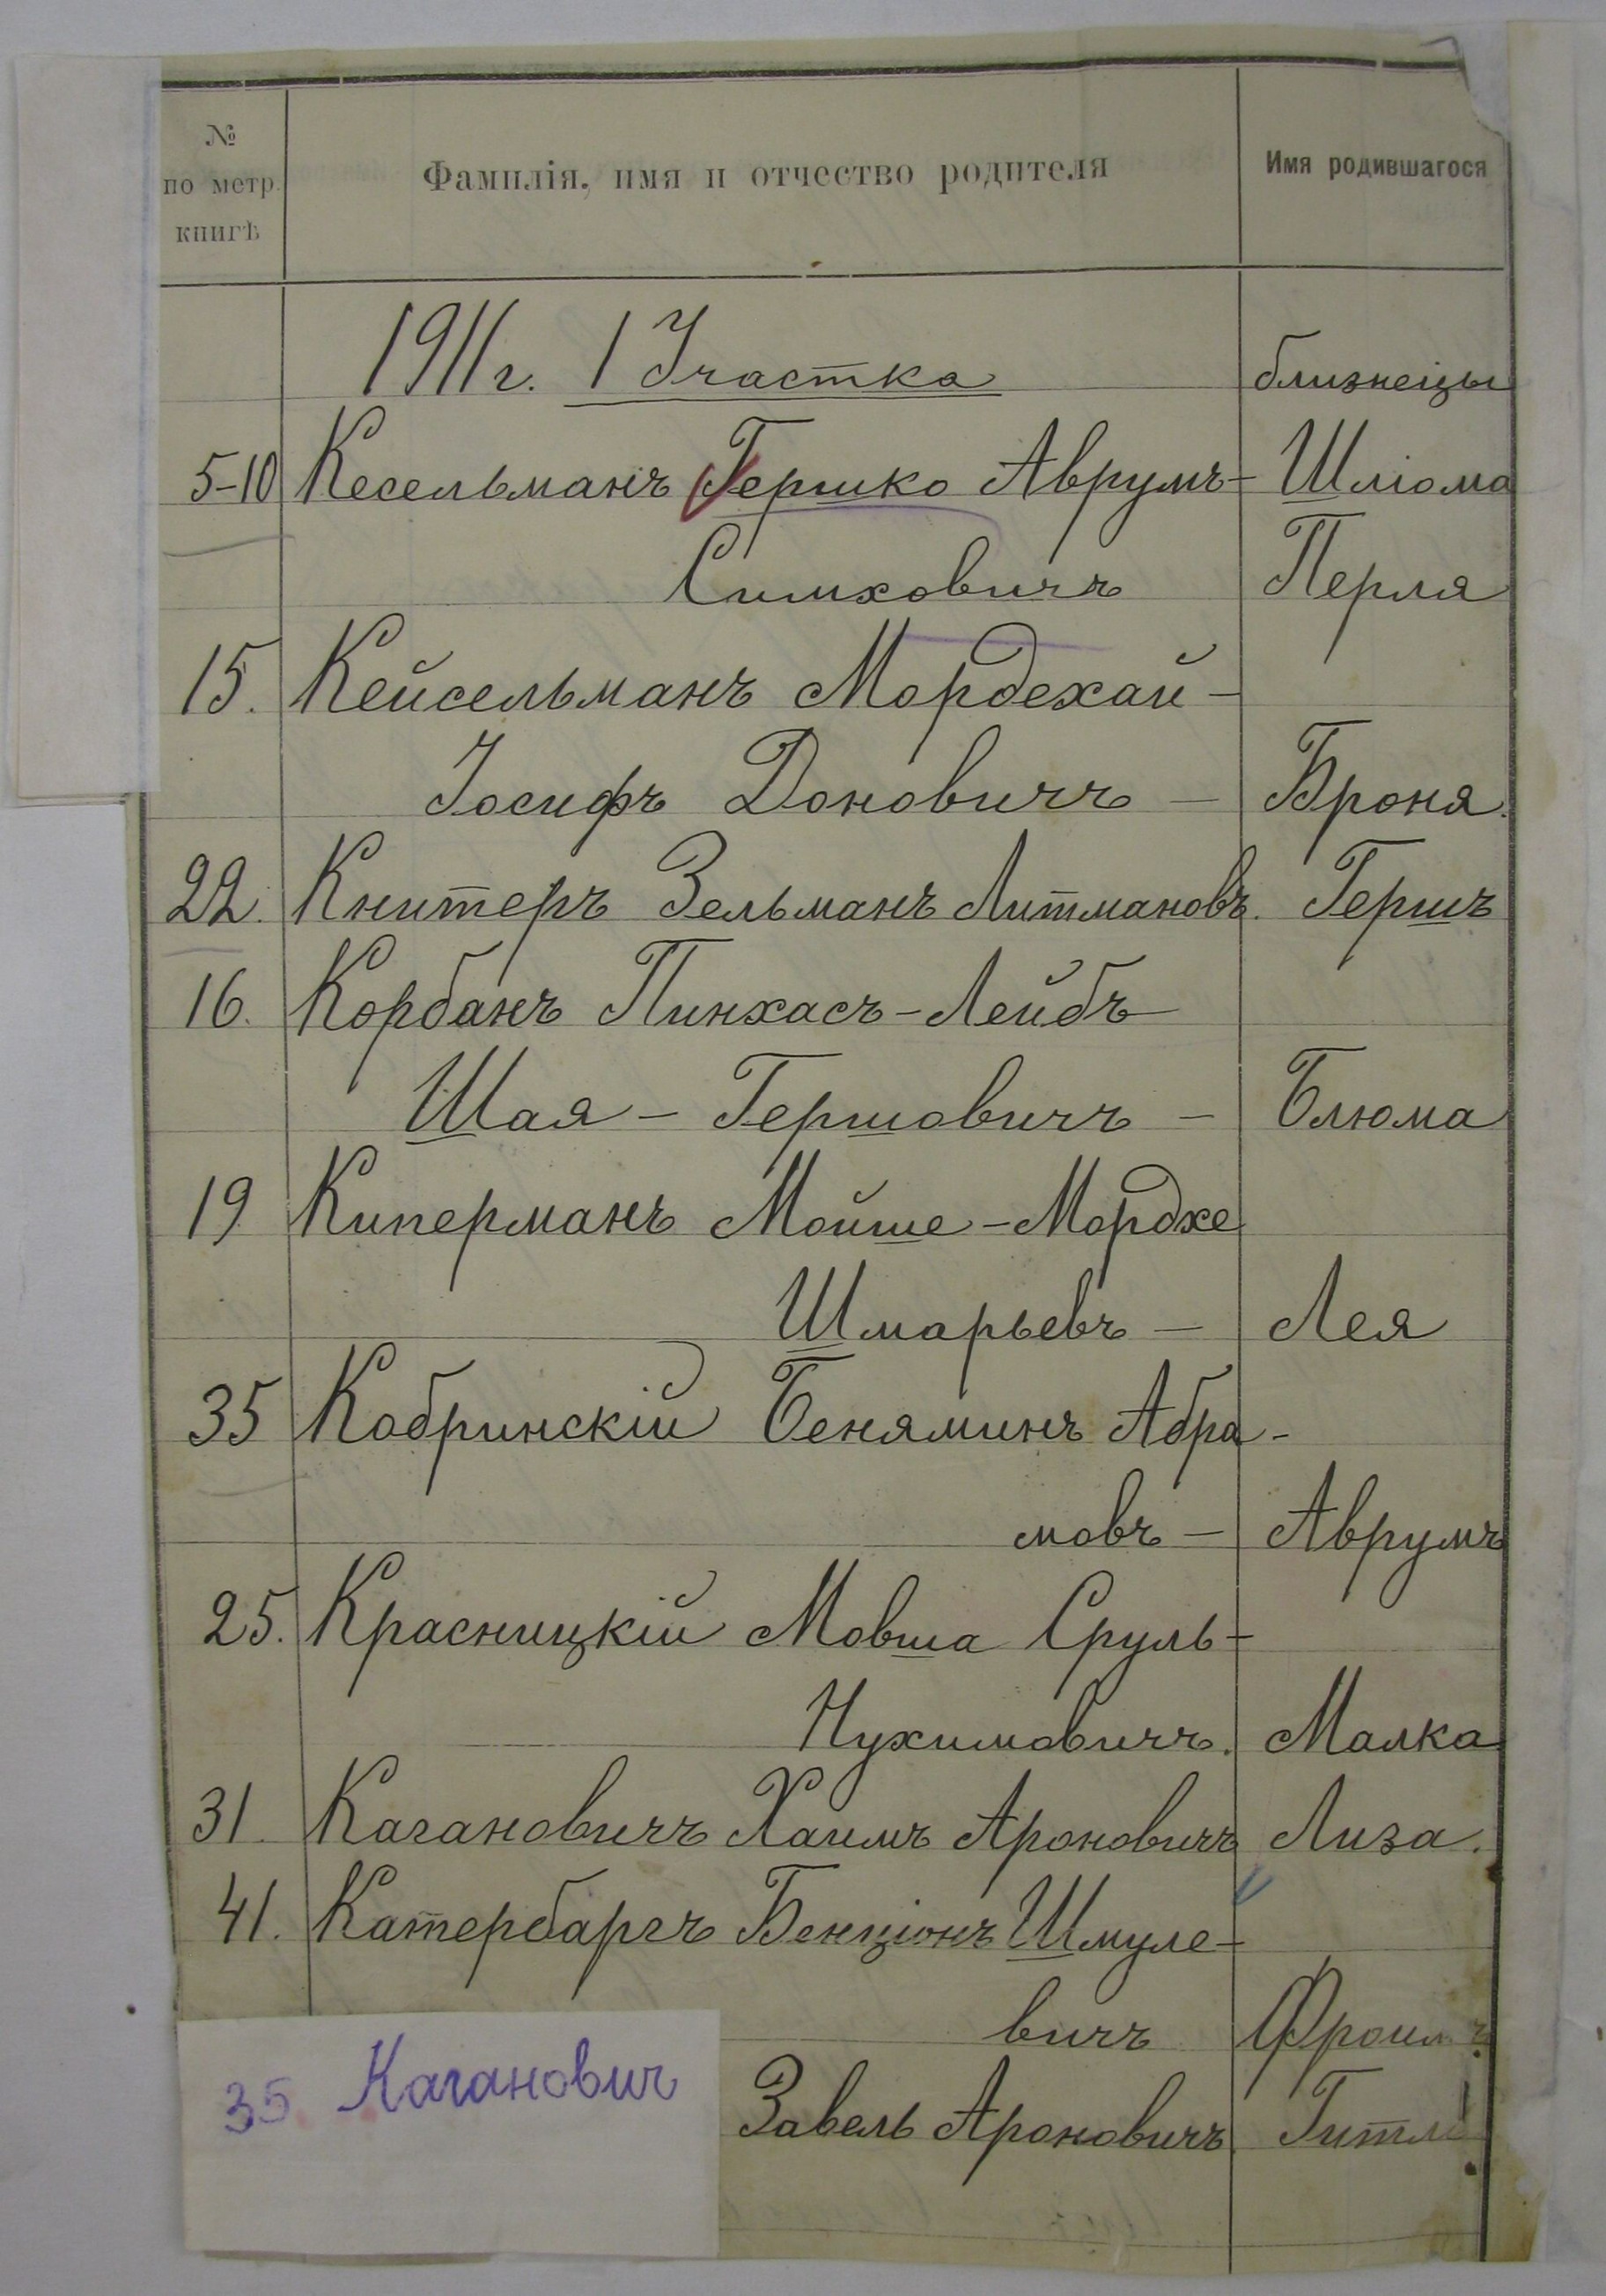 № по метр. книгѣ
Фамилія, имя и отчество родителя
Имя родившагося
1911 г. 1 Участка близнецы
5-10 Кесельманъ Гершко Аврумъ- Шліома
Симховичъ Перля
15. Кейсельманъ Мордехай-
Іосифъ Доновичъ - Броня.
22. Книтеръ Зельманъ Литмановъ. Гершъ
16. Корбанъ Пинхасъ-Лейбъ
Шая - Гершовичъ - Блюма
19 Киперманъ Мойше-Мордхе
Шмарьевъ - Лея
35 Кобринскій Беняминъ Абра-
мовъ - Аврумъ
25. Красницкій Мовша Сруль-
Нухимовичъ. Малка
31. Кагановичъ Хаимъ Ароновичъ Лиза.
41. Катербаргъ Бенціонъ Шмуле-
вичъ Фроимъ
35. Каганович Завель Ароновичъ